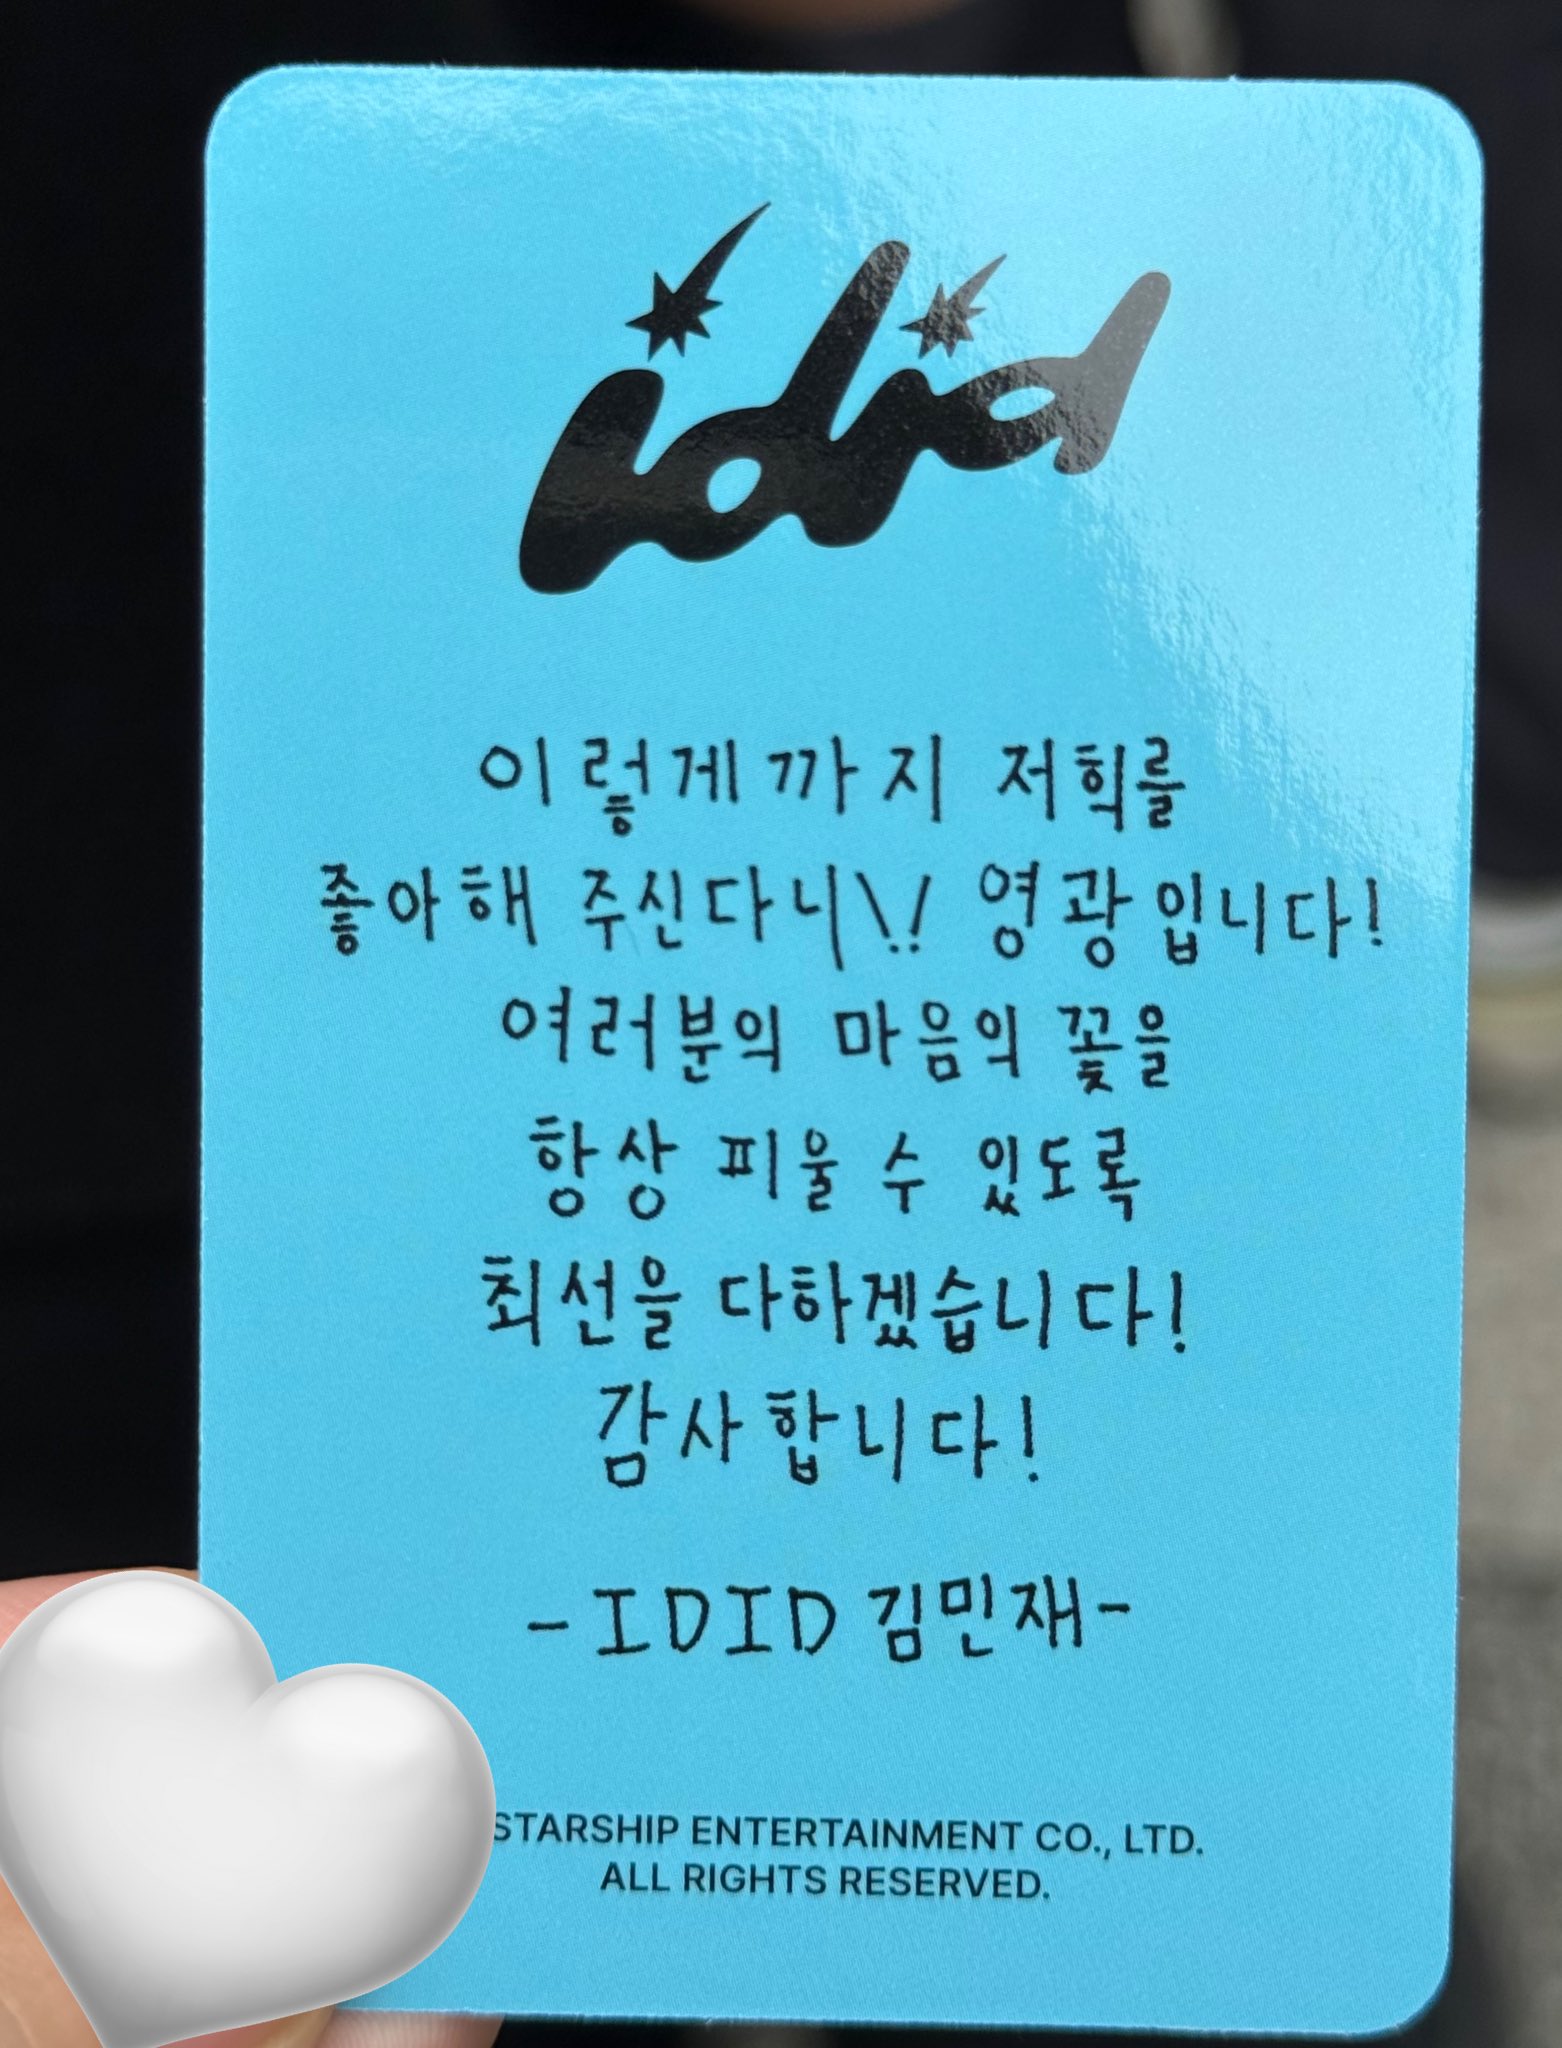 idid
이렇게까지 저희를
좋아해 주신다니\!! 영광입니다!
여러분의 마음의 꽃을
항상 피울 수 있도록
최선을 다하겠습니다!
감사합니다!
-IDID 김민재-
STARSHIP ENTERTAINMENT CO., LTD.
ALL RIGHTS RESERVED.